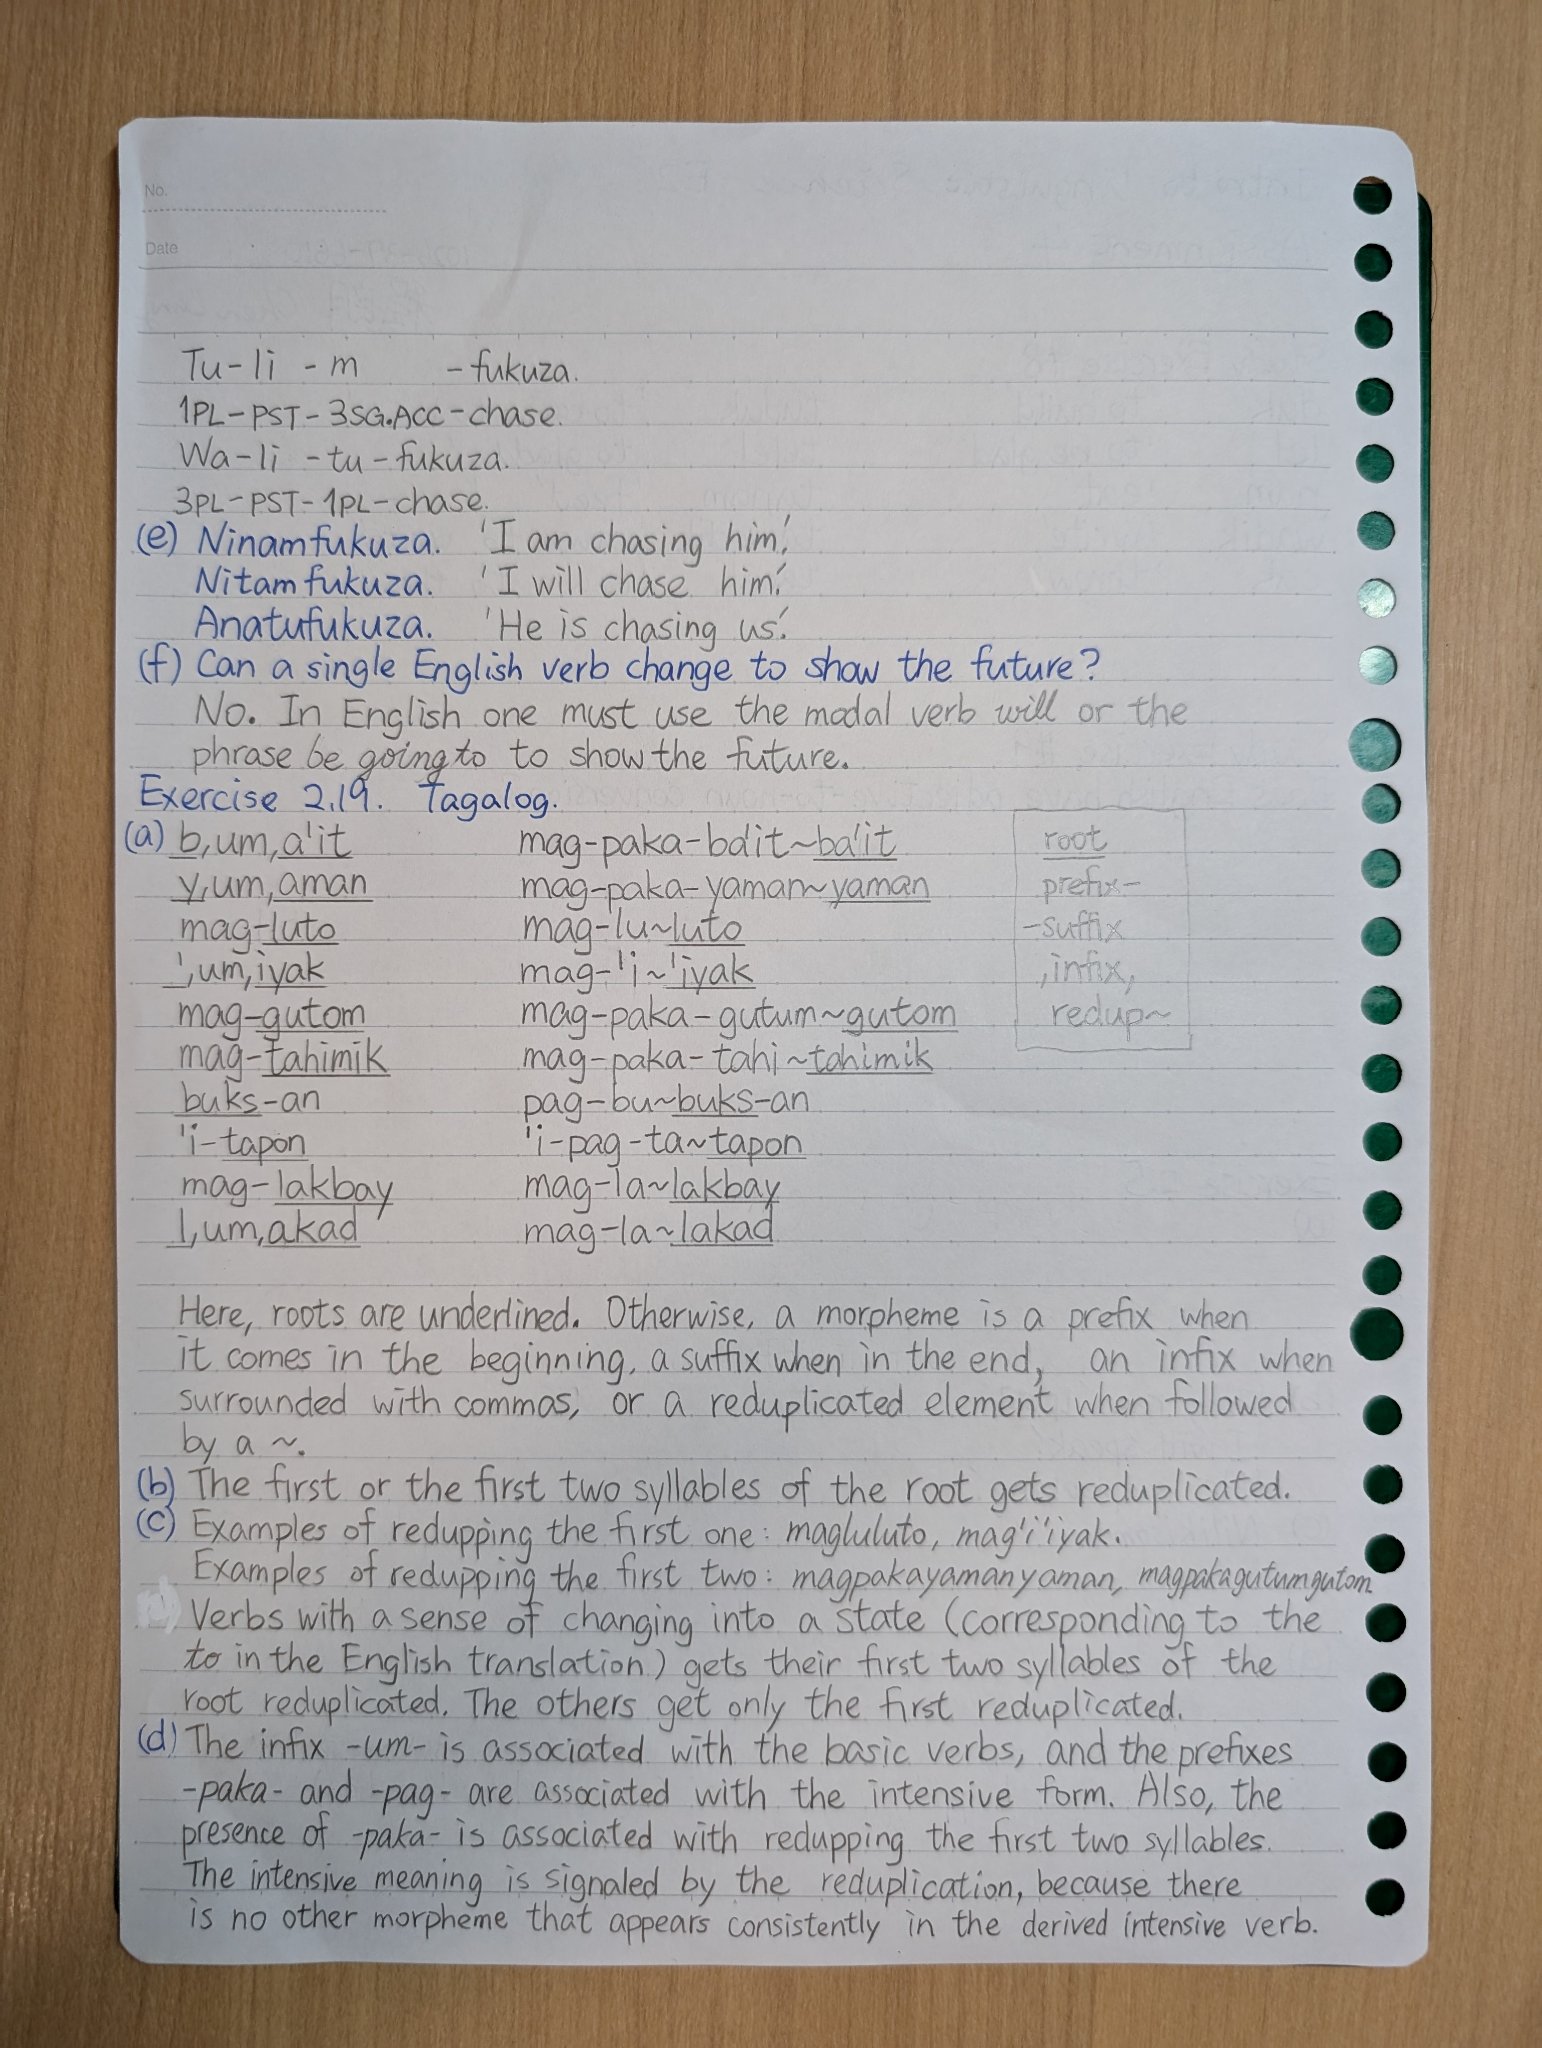 No.
Date
Tu-li - m -fukuza.
1PL-PST-3SG.ACC-chase.
Wa-li -tu-fukuza.
3PL-PST-1PL-chase.
(e) Ninamfukuza. 'I am chasing him.'
Nitamfukuza. 'I will chase him.'
Anatufukuza. 'He is chasing us.'
(f) Can a single English verb change to show the future?
No. In English one must use the modal verb will or the
phrase be going to to show the future.
Exercise 2.19. Tagalog.
(a) b,um,a'it mag-paka-ba'it~ba'it root
y,um,aman mag-paka-yaman~yaman prefix-
mag-luto mag-lu~luto -suffix
',um,iyak mag-'i~'iyak ,infix,
mag-gutom mag-paka-gutum~gutom redup~
mag-tahimik mag-paka-tahi~tahimik
buks-an pag-bu~buks-an
'i-tapon 'i-pag-ta~tapon
mag-lakbay mag-la~lakbay
l,um,akad mag-la~lakad
Here, roots are underlined. Otherwise, a morpheme is a prefix when
it comes in the beginning, a suffix when in the end, an infix when
surrounded with commas, or a reduplicated element when followed
by a ~.
(b) The first or the first two syllables of the root gets reduplicated.
(c) Examples of redupping the first one: magluluto, mag'i'iyak.
Examples of redupping the first two: magpakayamanyaman, magpakagutumgutom
Verbs with a sense of changing into a state (corresponding to the
to in the English translation) gets their first two syllables of the
root reduplicated. The others get only the first reduplicated.
(d) The infix -um- is associated with the basic verbs, and the prefixes
-paka- and -pag- are associated with the intensive form. Also, the
presence of -paka- is associated with redupping the first two syllables.
The intensive meaning is signaled by the reduplication, because there
is no other morpheme that appears consistently in the derived intensive verb.